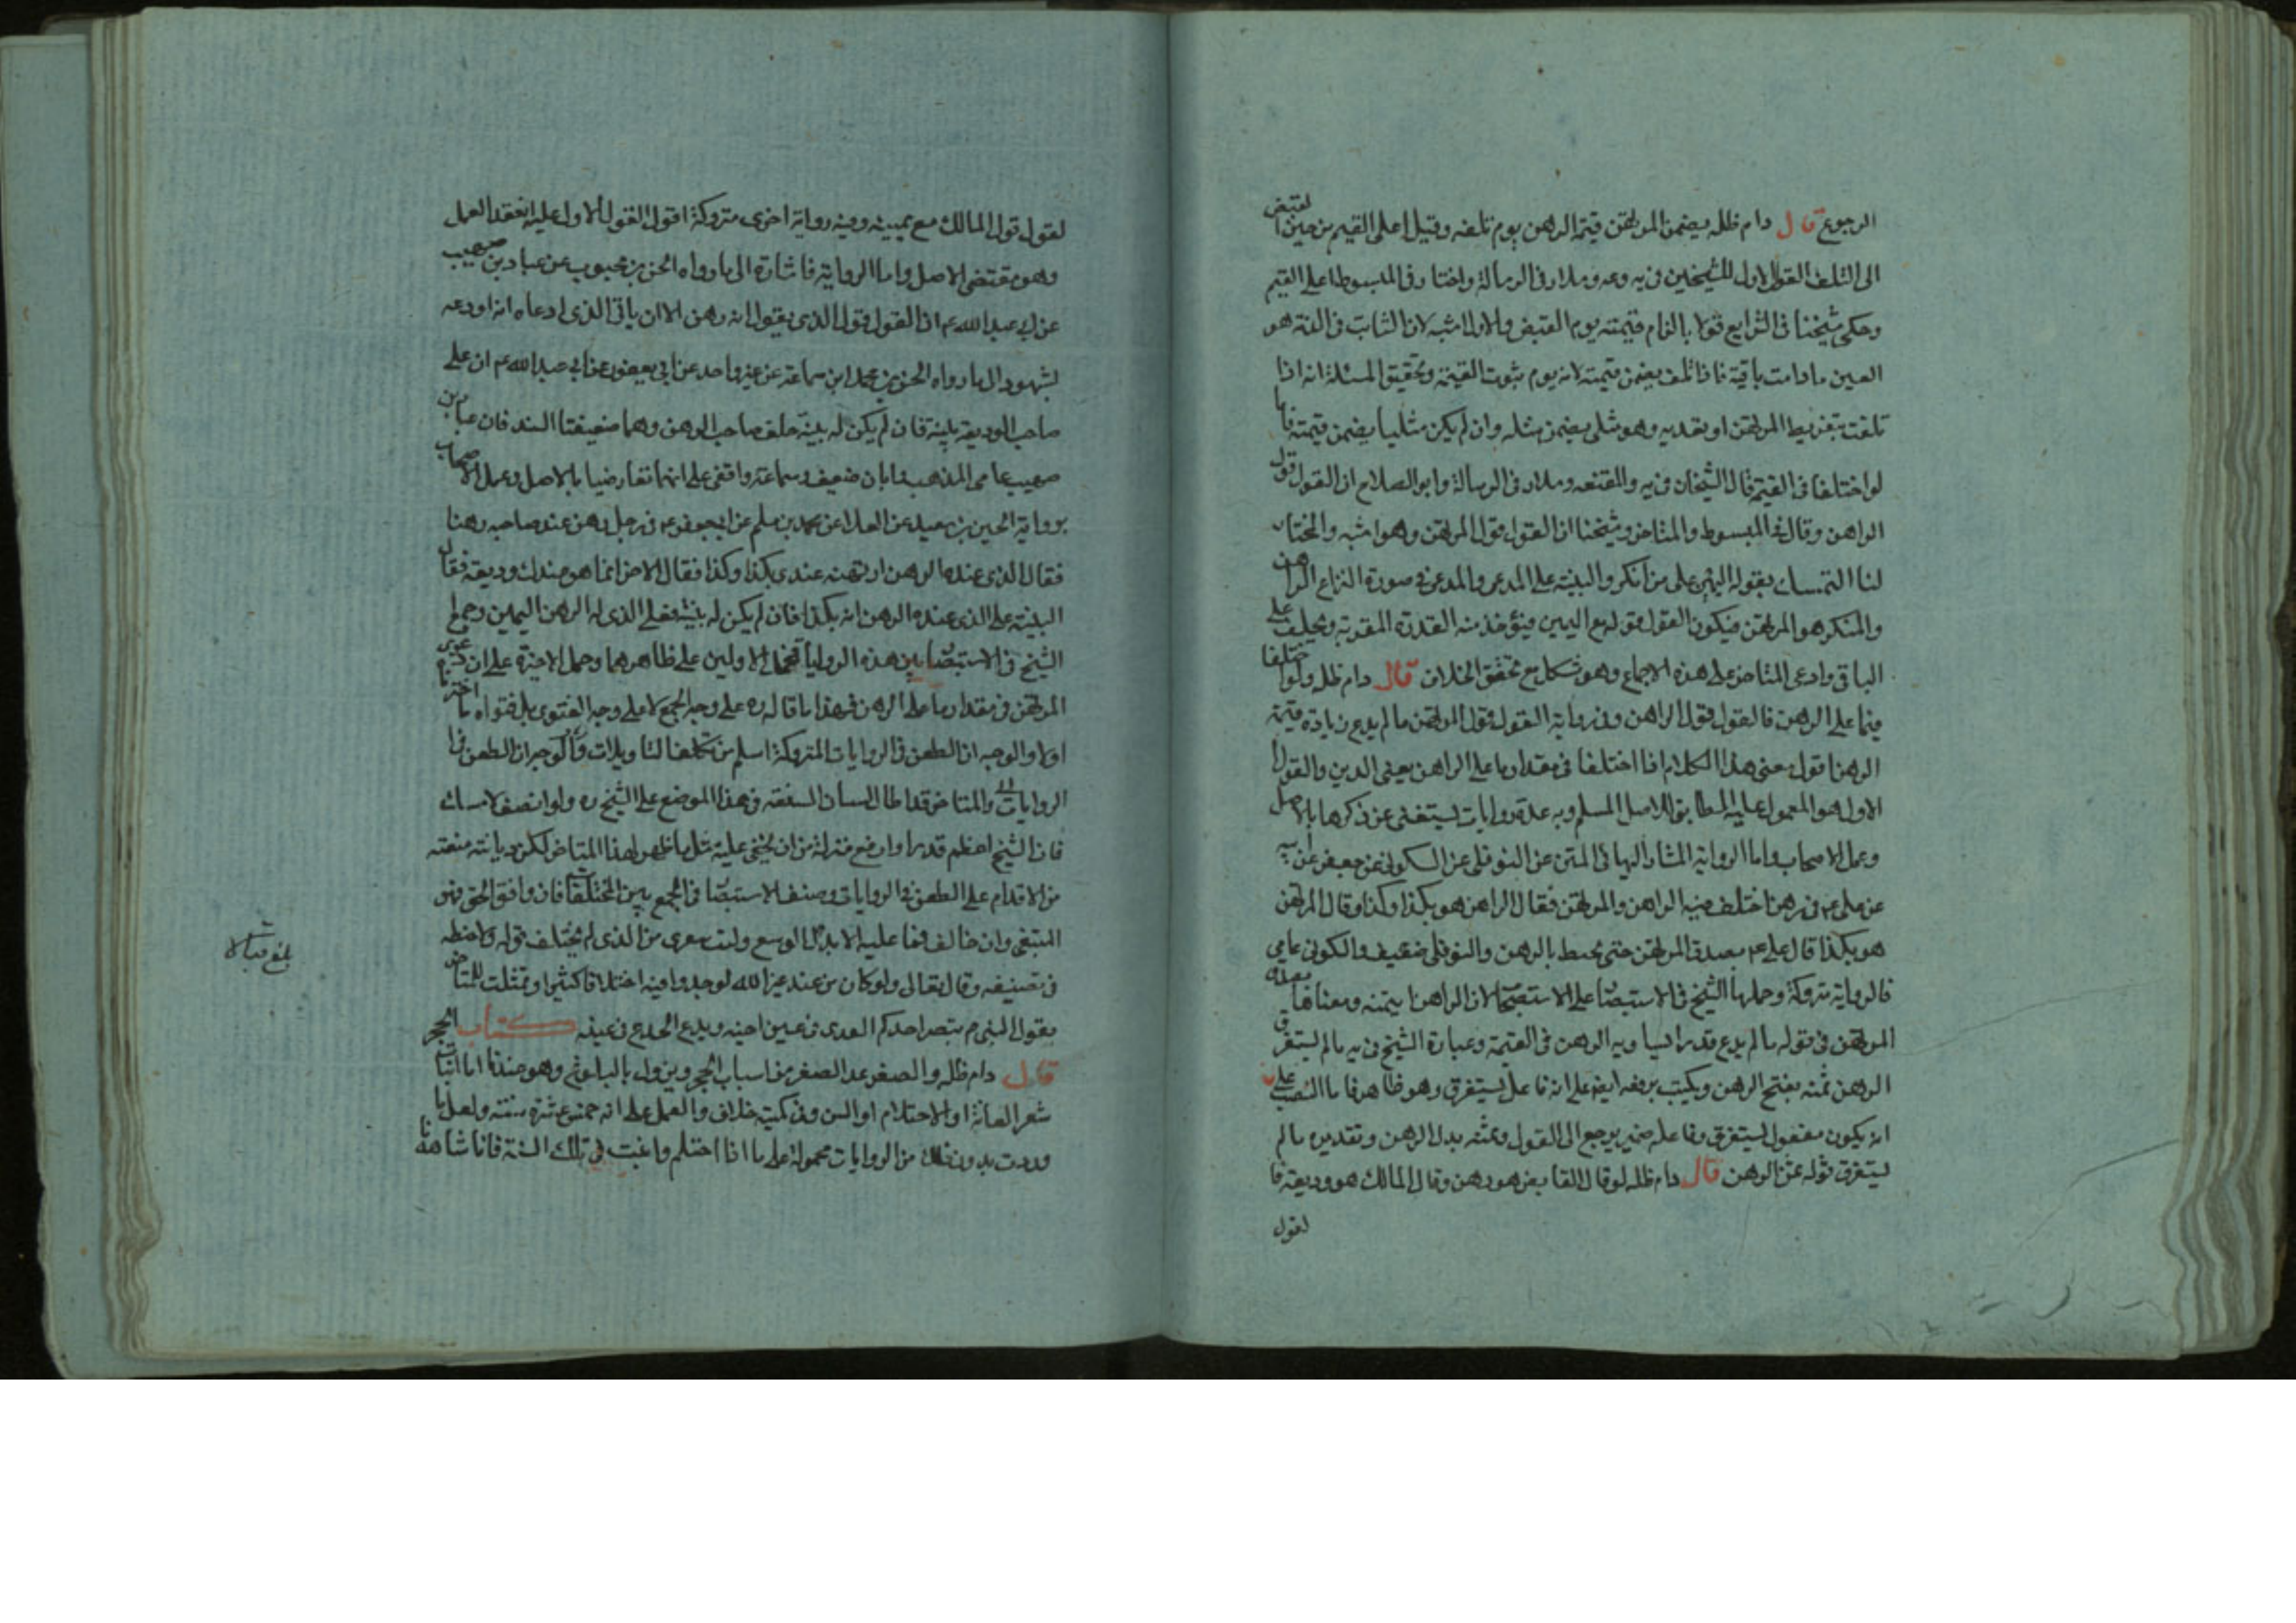 الرجوع قال دام ظله يضمن المرتهن قيمة الرهن يوم تلفه وقيل اعلى القيم من حين القبض
الى التلف القول الاول للشيخين في يه وعه وسلار في الرسالة واختار في المبسوط اعلى القيم
وحكى شيخنا في الشرايع قولا بالزام قيمته يوم القبض والاول اشبه لان الثابت في الذمة هو
العين مادامت باقية فاذا تلف يضمن قيمته لانه يوم ثبوت القيمة وتحقيق المسئلة انه اذا
تلفت بتفريط المرتهن او تعديه وهو مثلى يضمن مثله وان لم يكن مثليا يضمن قيمته فاما
لو اختلفا في القيمة قال الشيخان في يه والمقنعه وسلار في الرسالة وابو الصلاح ان القول قول
الراهن وقال في المبسوط والمتاخر وشيخنا ان القول قول المرتهن وهو اشبه والمختار
لنا التمسك بقوله اليمين على من انكر والبينة على المدعى والمدعى في صورة النزاع الراهن
والمنكر هو المرتهن فيكون القول قوله مع اليمين فيؤخذ منه القدر المقر به ويحلف على
الباقي وادعى المتاخر على هذه الاجماع وهو مشكل مع تحقق الخلاف قال دام ظله ولو اختلفا
فيما على الرهن فالقول قول الراهن وفي رواية القول قول المرتهن ما لم يدع زيادة قيمة
الرهن اقول معنى هذا الكلام اذا اختلفا في مقدار ما على الراهن يعنى الدين والقول
الاول هو المعمول عليه المطابق للاصل المسلم وبه عدة روايات يستغنى عن ذكرها بالاصل
وعمل الاصحاب واما الرواية المشار اليها في المتن عن النوفلى عن السكونى عن جعفر عن ابيه
عن على عم في رهن اختلف فيه الراهن والمرتهن فقال الراهن هو بكذا وكذا وقال المرتهن
هو بكذا قال على عم يصدق المرتهن حتى يحيط بالرهن والنوفلى ضعيف والسكونى عامى
فالرواية متروكة وحملها الشيخ في الاستبصا على الاستصحا لان الراهن ايتمنه ومعناها
المرتهن في قوله ما لم يدع قدرا يساويه الرهن في القيمة وعبارة الشيخ في يه ما لم يستغرق
الرهن ثمنه بفتح الرهن ويكتب برفعه ايض على انه فاعل يستغرق وهو ظاهر فاما النصب على
انه يكون مفعول يستغرق وفاعله ضمير يرجع الى القول وثمنه بدل الرهن وتقديره ما لم
يستغرق قوله ثمن الرهن قال دام ظله لو قال القابض هو رهن وقال المالك هو وديعة فا
لقول
لقول قول المالك مع يمينه وفيه رواية اخرى متروكة اقول القول الاول عليه انعقد العمل
وهو مقتضى الاصل واما الرواية فاشارة الى ما رواه الحسن بن محبوب عن عباد بن صهيب
عن ابي عبد الله عم ان القول قول الذى يقول انه رهن الا ان ياتى الذى ادعاه انه اودعه
بشهود ال ما رواه الحسن بن محمد ابن سماعة عن غير واحد عن ابى يعفور عن ابي عبد الله عم ان على
صاحب الوديعة بينة فان لم يكن له بينة حلف صاحب الرهن وهما ضعيفتا السند فان عباد بن
صهيب عامى المذهب وابان ضعيف وسماعة واقفى على انهما تعارضيا بالاصل وعمل الاصحاب
برواية الحسين بن سعيد عن العلا عن محمد بن مسلم عن ابي جعفر عم في رجل رهن عند صاحبه رهنا
فقال الذى عنده الرهن ارتهنته عندى بكذا وكذا فقال الاخر انما هو عندك وديعة فقال
البينة على الذى عنده الرهن انه بكذا فان لم يكن له بينة فعلى الذى له الرهن اليمين وجمع
الشيخ في الاستبصا بين هذه الروايا فحمل الاولين على ظاهرهما وحمل الاخيرة على ان دعوى
المرتهن في مقدار ما على الرهن فهذا ما قاله ره على وجه الجمع لا على وجه الفتوى بل فتواه ما اخترنا
اولا والوجه ان الطعن في الروايات المتروكة اسلم من تكلف التاويلات
الروايات والمتاخر قد اطال لسان السفه في هذا الموضع على الشيخ ره ولو انصف لامسك
فان الشيخ اعظم قدرا وارفع منزلة من ان يخفى عليه مثل ما ظهر لهذا المتاخر لكن ديانته منعته
من الاقدام على الطعن في الروايات وصنف الاستبصا في الجمع بين المختلفا فان وافق الحق فهو
المبتغى وان خالف فما عليه الا بذل الوسع وليت شعرى من الذى لم يختلف قوله ولاخطه
في تصنيفه وقال تعالى ولو كان من عند غير الله لوجدوا فيه اختلافا كثيرا وتمثلت للمتاخر
بقول النبي م يبصر احدكم القذى في عين اخيه ويدع الجذع في عينه كتاب الحجر
قال دام ظله والصغر عد الصغر من اسباب الحجر ويزول بالبلوغ وهو عندنا اما انبات
شعر العانة او الاحتلام او السن وفي كميته خلاف والعمل على انه خمس عشرة سنة ولعل ما
وردت بدون ذلك من الروايات محمولة على ما اذا احتلم وانبت في تلك السنة فانا شاهدنا
بلغ قبالا